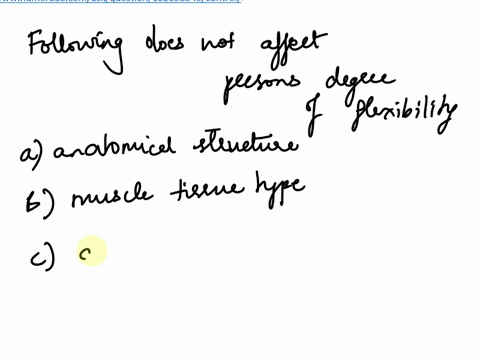 Following does not affect
persons degree
of flexibility
a) anatomical structure
b) muscle tissue type
c) c